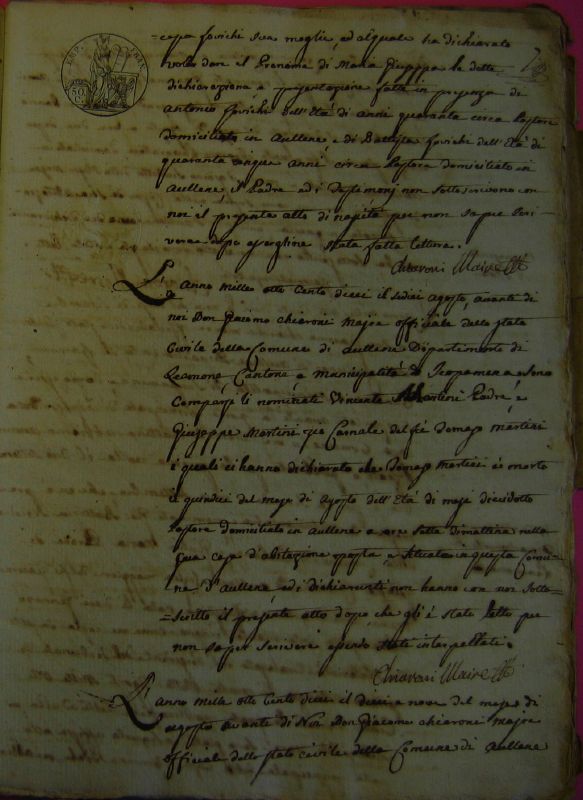 =copa fovichi sua moglie, ed al quale ha dichiarato
voler dare il Prenome di Maria Giuseppa le dette
dichiarazione e presentazione fatta in presenza de
Antonio fovichi dell'Età di anni quaranta circa Pastore
domiciliato in Aullene, e di Battista fovichi dell'Età di
quaranta cinque anni circa Pastore domiciliato in
Aullene, il Padre ed i Testimonj non sottoscrivono con
noi il presente atto di nascita per non saper scri-
vere dopo essergline stata fatta lettura.
Chiaroni Maire
L'Anno mille otto cento dieci il sedici agosto, avante di
noi Don Giacomo Chiaroni Major officiale dello stato
Civile della Comune di Aullene Dipartimento di
Leamone Cantone e municipalità di Scopamena sono
Comparsi li nominati Vincente Martini Padre, e
Giuseppe Martini zio Carnale del fù Tomaso Martini
i quali ci hanno dichiarato che Tomaso Martini è morto
il quindici del mese di Agosto dell'Età di mesi dieciotto
Pastore domiciliato in Aullene a ore sette di mattina nella
sua casa d'abitazione posta, e situata in questa Comu-
na d'Aullene, ed i dichiaranti non hanno con noi sotto-
=scritto il presente atto dopo che gli è stato letto per
non saper scrivere essendo stati interpellati.
Chiaroni Maire
L'anno mille otto Cento dieci il dieci e nove del mese di
agosto avante di Noi Don Giacomo Chiaroni Major
officiale dello stato civile della Comune di Aullene